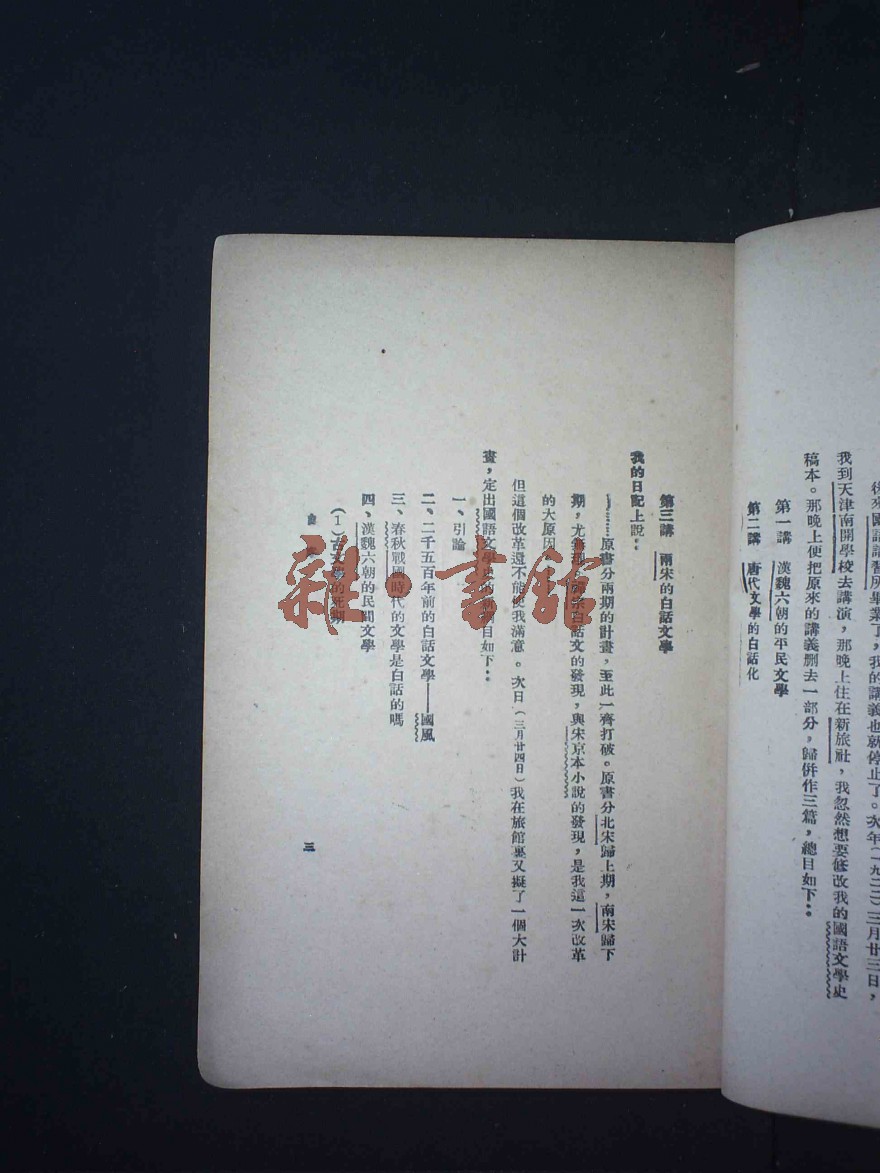 後來國語講習所畢業了，我的講義也就停止了。次年(一九二二)三月廿三日，
我到天津南開學校去講演，那晚上住在新旅社，我忽然想要修改我的國語文學史
稿本。那晚上便把原來的講義刪去一部分，歸併作三篇，總目如下：
第一講　漢魏六朝的平民文學
第二講　唐代文學的白話化
第三講　兩宋的白話文學
我的日記上說：
……原書分兩期的計畫，至此一齊打破。原書分北宋歸上期，南宋歸下
期，尤無理。禪宗白話文的發現，與宋京本小說的發現，是我這一次改革
的大原因。
但這個改革還不能使我滿意。次日(三月廿四日)我在旅館裏又擬了一個大計
畫，定出國語文學史的新綱目如下：
一、引論
二、二千五百年前的白話文學——國風
三、春秋戰國時代的文學是白話的嗎
四、漢魏六朝的民間文學
(1)古文學的死期
三
雜·書館